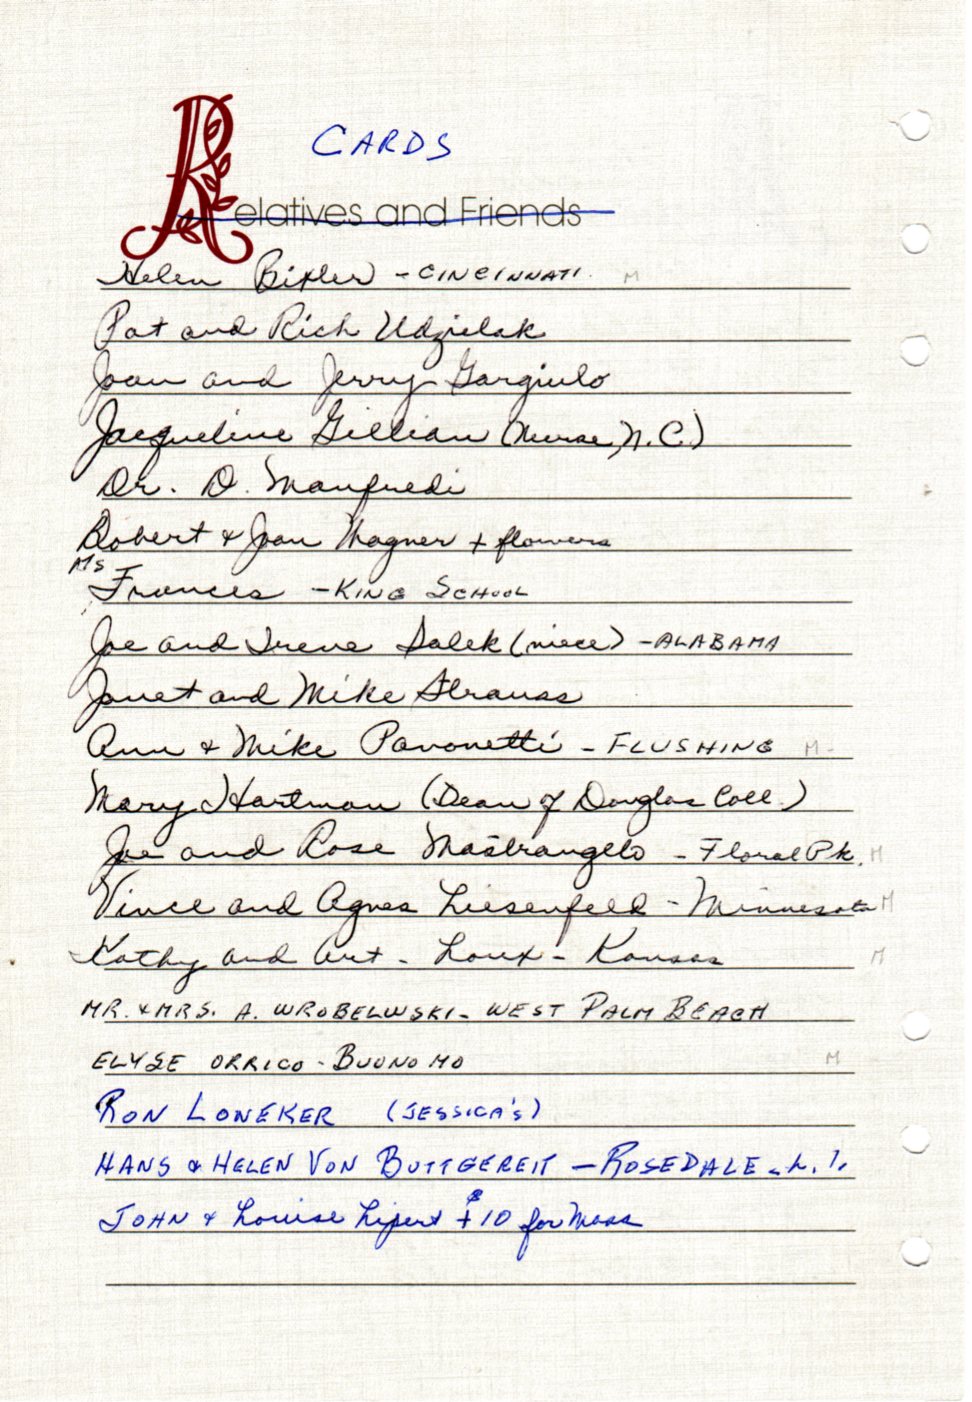 CARDS
Relatives and Friends
Helen Bixler - CINCINNATI. M
Pat and Rich Udzielak
Joan and Jerry Gargiulo
Jacqueline Gillian (Nurse, N.C.)
Dr. D. Manfredi
Robert & Joan Wagner + flowers
Ms Frances - KING SCHOOL
Joe and Irene Salek (niece) - ALABAMA
Janet and Mike Strauss
Ann & Mike Pavonetti - FLUSHING M-
Mary Hartman (Dean of Douglas Coll.)
Joe and Rose Mastrangelo - Floral Pk. M
Vince and Agnes Liesenfeld - Minnesota M
Kathy and Art - Loux - Kansas M
MR. & MRS. A. WROBELWSKI - WEST PALM BEACH
ELYSE ORRICO - BUONOMO M
RON LONEKER (JESSICA'S)
HANS & HELEN VON BUTTGEREIT - ROSEDALE - L.I.
JOHN & Louise Lipert + $10 for Mass